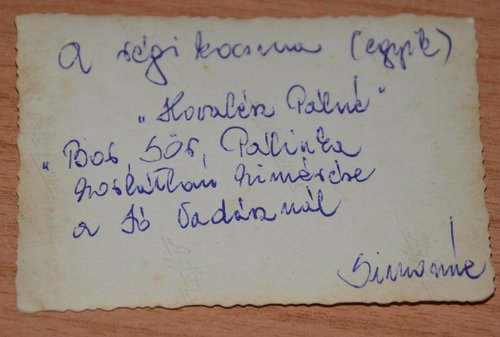 A régi kocsma (egyik)
"Kovalész Pálné"
"Bor, Sör, Pálinka
korlátlan kimérése
a Jó Vadásznál
Simonné